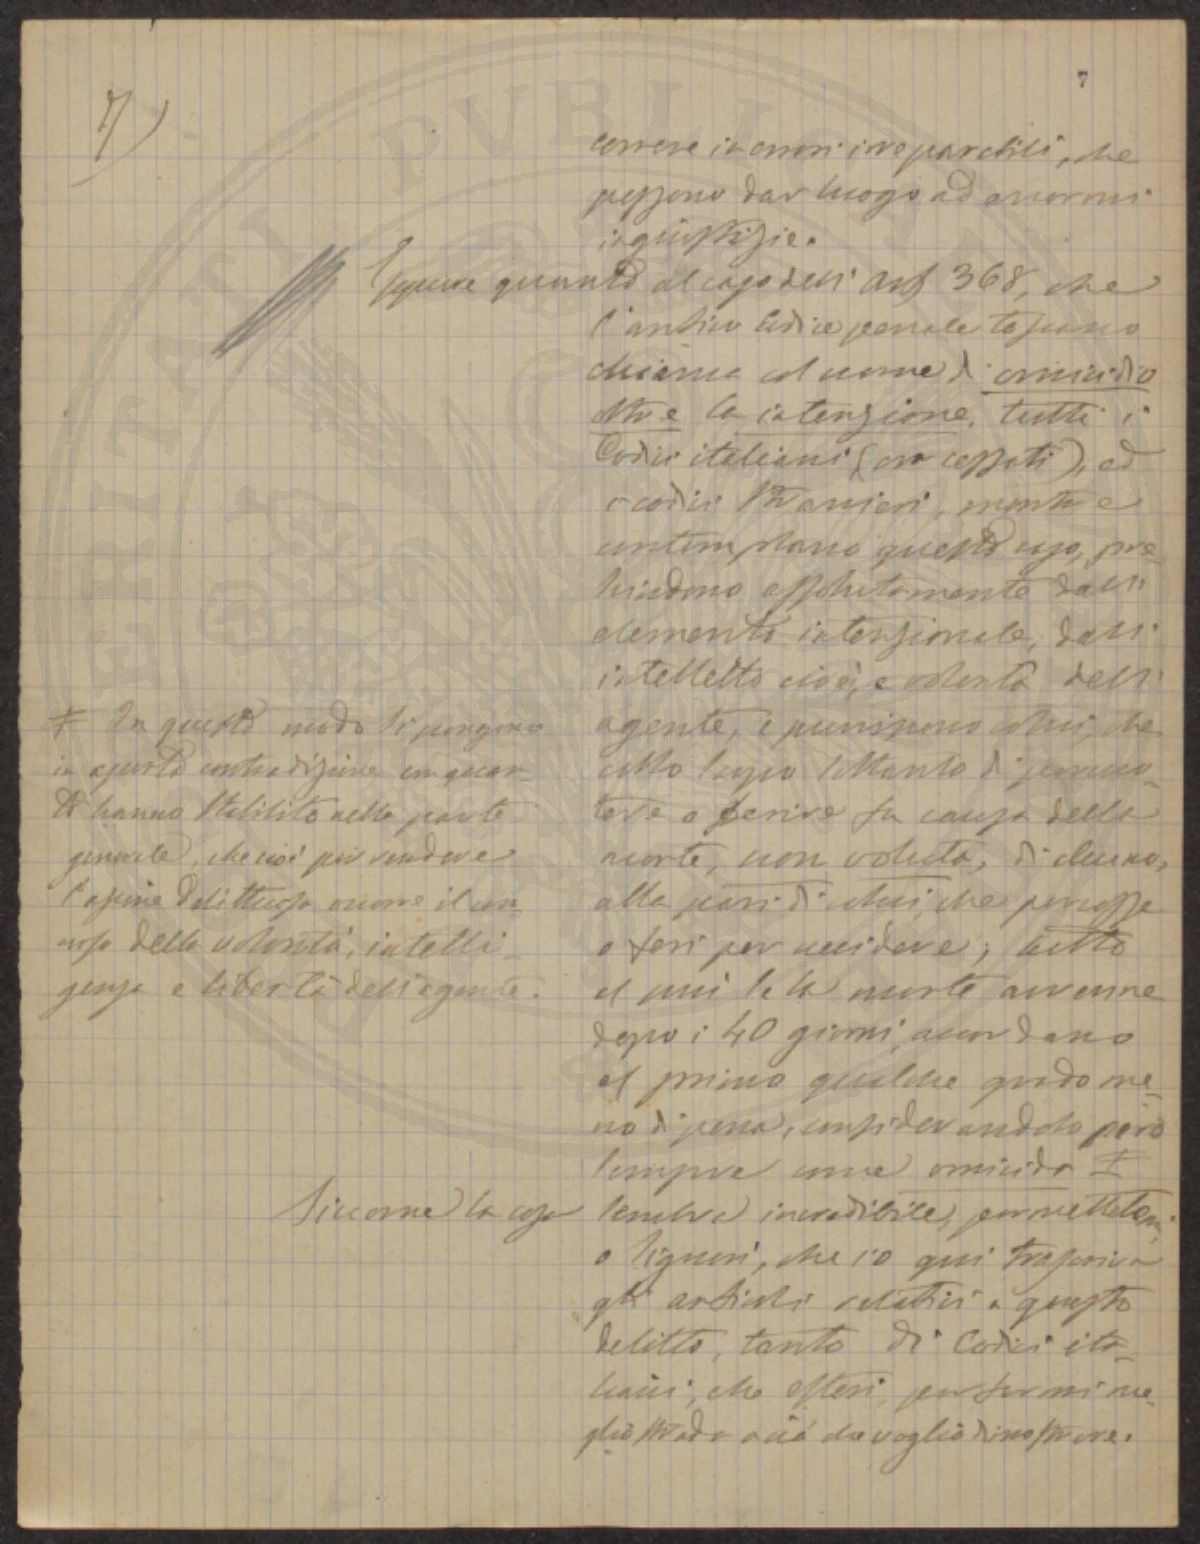 7
7)
correre in errori irreparabili, che
possono dar luogo ad enormi
ingiustizie.
Eppure quanto al caso dell'Art 368, che
l'antico Codice penale toscano
chiama col nome di omicidio
oltre la intenzione, tutti i
Codici italiani (ora cessati), ed
i codici stranieri, mentre
contemplano questo caso, pre-
scindono assolutamente dall'
elemento intenzionale, dall'
intelletto cioè, e volontà dell'
agente, e puniscono colui, che
collo scopo soltanto di percuo-
tere o ferire fu causa della
morte, non voluta, di alcuno,
alla pari di colui, che percosse
o ferì per uccidere; tutto
al più se la morte avvenne
dopo i 40 giorni, accordano
al primo qualche grado me-
no di pena, considerandolo però
sempre come omicida ‡
‡ In questo modo si pongono
in aperta contradizione con quan-
to hanno stabilito nella parte
generale, che cioè per rendere
l'azione delittuosa occorre il con-
corso della volontà, intelli-
genza e libertà dell'agente.
Siccome la cosa sembra incredibile, permettetemi,
o Signori, che io qui trascriva
gli articoli relativi a questo
delitto, tanto di Codici ita-
liani, che esteri, per farmi me-
glio strada a ciò che voglio dimostrare.
PUBLICA
VERITATI